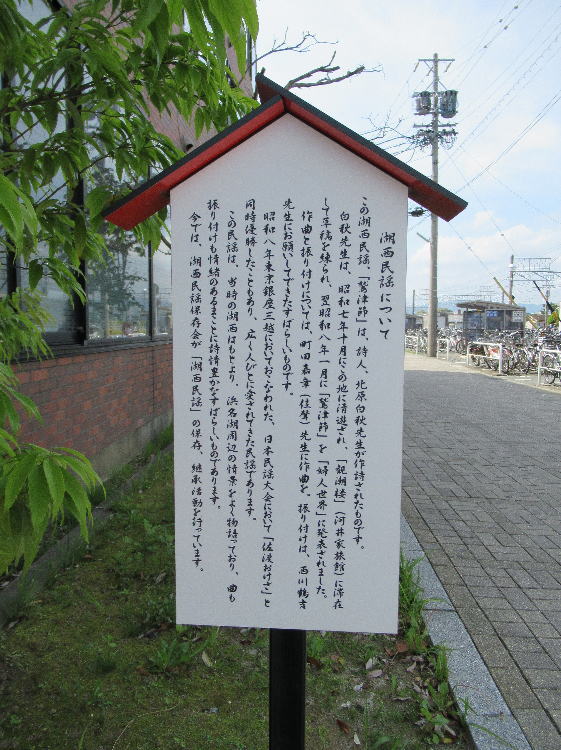 湖西民謡について
この湖西民謡、「鷲津節」は、詩人、北原白秋先生が作詩されたものです。
白秋先生は、昭和七年十月にこの地に清遊され、「観湖楼」（河井家旅館）に滞在
して草稿を練られ、翌昭和八年一月に「鷲津節」を「婦人世界」に発表されました。
作曲と振り付けについては、町田嘉章（佳聲）先生に作曲を、振り付けは、西川鶴吉
先生にお願いしてできたすばらしいものです。
昭和八年東京銀座三越においておこなわれた、日本民謡大会において「佐渡おけさ」と
同時優勝したこともあり、広く人びとに愛されてきた民謡であります。
この民謡は、当時の湖西はもとより、浜名湖周辺の情景をよく物語っており、曲も
振り付けも情緒のあるまことに詩情豊かなすばらしいものであります。
今では、湖西民謡保存会が「湖西民謡」の保存、継承活動を行っています。